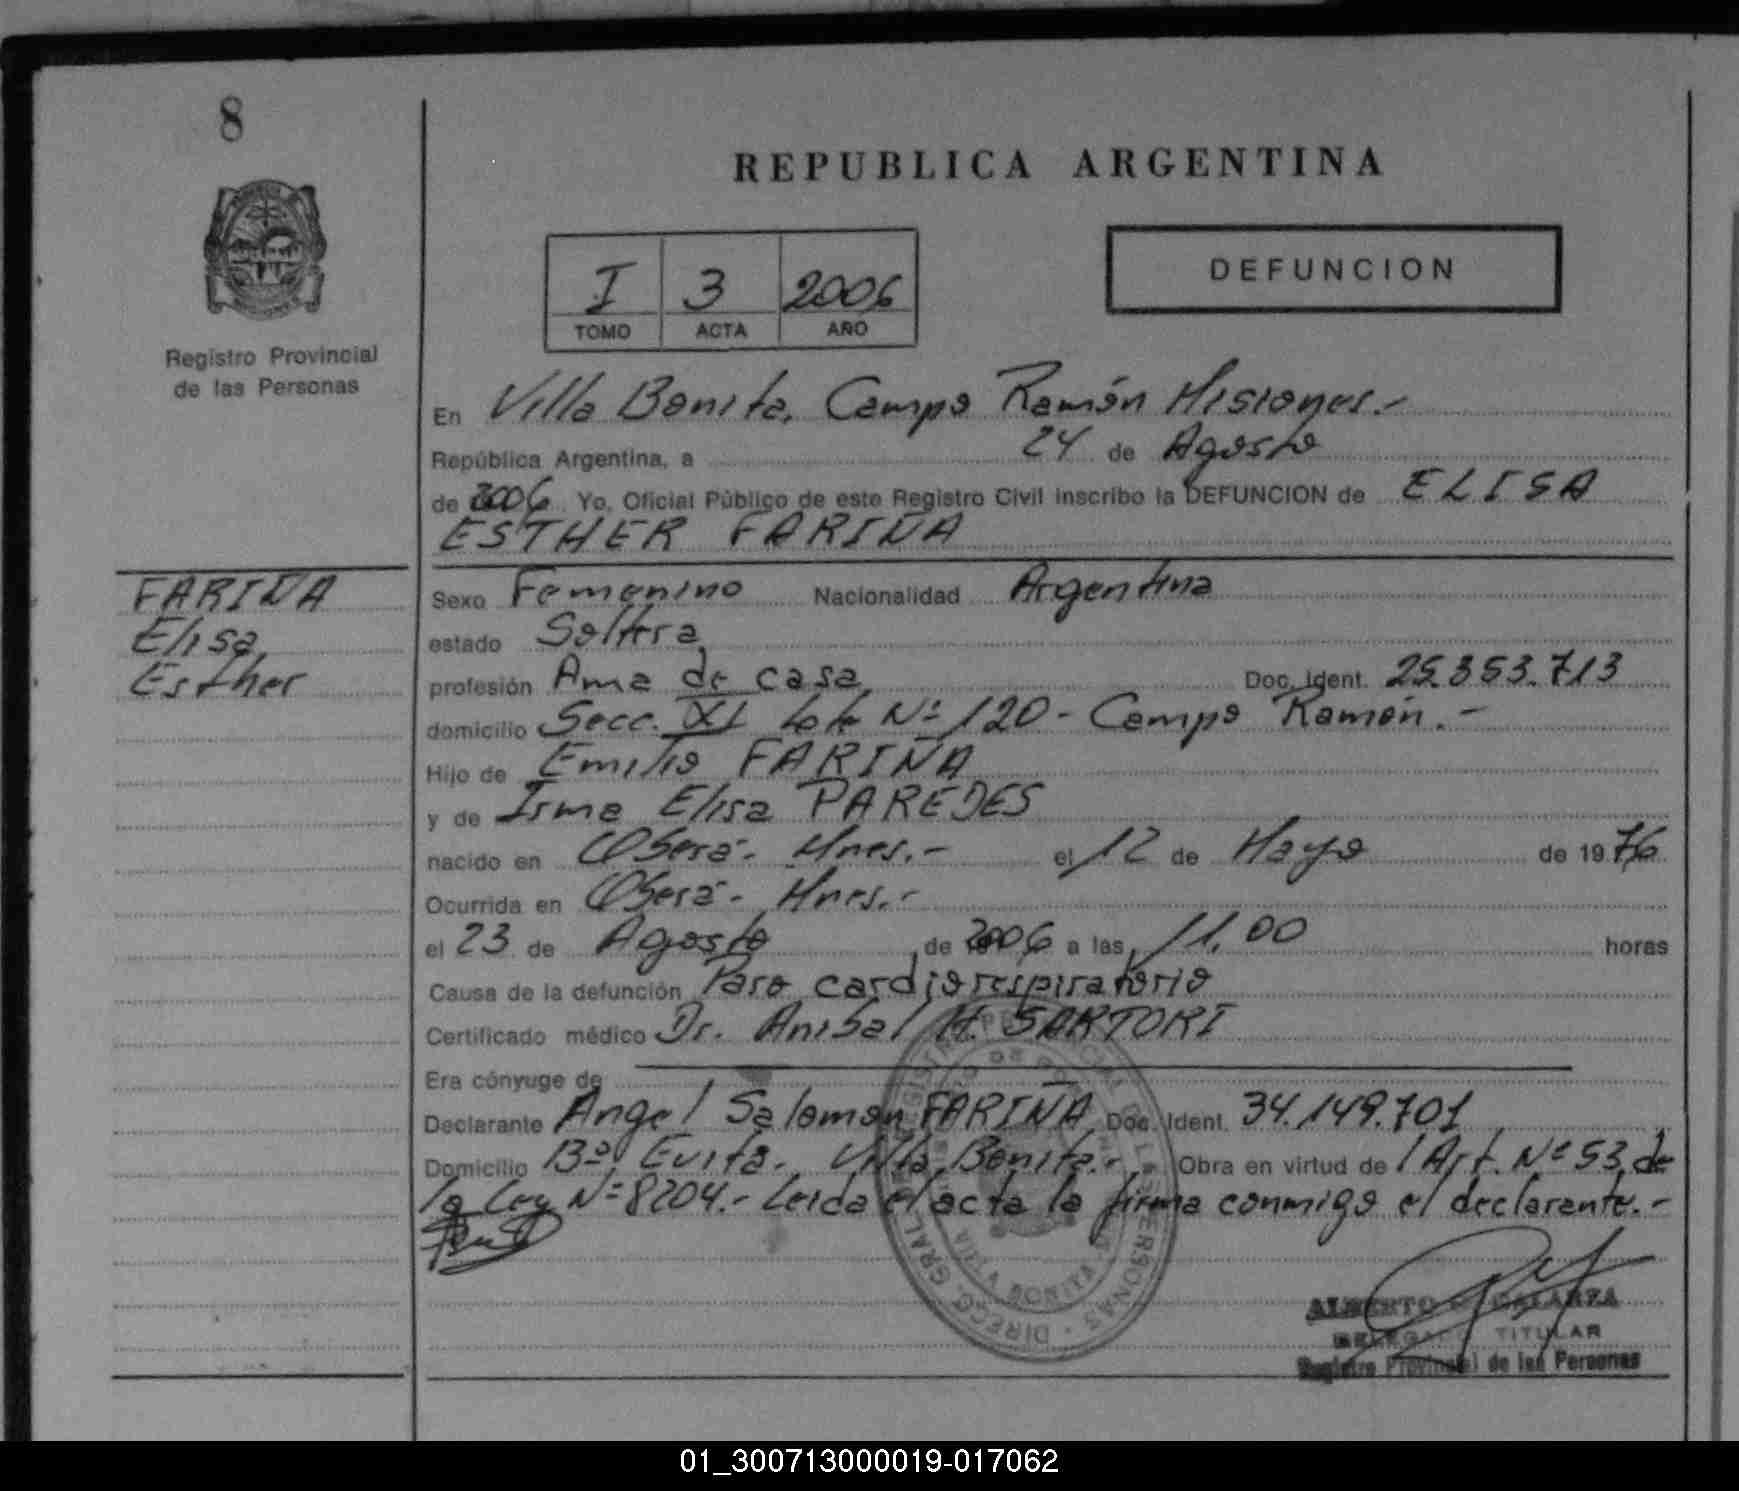 8
REPUBLICA ARGENTINA
I 3 2006
TOMO ACTA AÑO
DEFUNCION
Registro Provincial
de las Personas
En Villa Bonita, Campo Ramón Misiones.-
República Argentina, a 24 de Agosto
de 2006 Yo, Oficial Público de este Registro Civil inscribo la DEFUNCION de ELISA
ESTHER FARIÑA
FARIÑA
Elisa
Esther
Sexo Femenino Nacionalidad Argentina
estado Soltera
profesión Ama de casa Doc. Ident. 25.353.713
domicilio Secc. XI Lote Nº 120 - Campo Ramón.-
Hijo de Emilio FARIÑA
y de Irma Elisa PAREDES
nacido en Oberá - Mnes.- el 12 de Mayo de 1976
Ocurrida en Oberá - Mnes.-
el 23 de Agosto de 2006 a las 11.00 horas
Causa de la defunción Paro cardiorespiratorio
Certificado médico Dr. Anibal H. SARTORI
Era cónyuge de
Declarante Angel Salomon FARIÑA Doc. Ident. 34.149.701
Domicilio Bº Evita. Villa Bonita.- Obra en virtud de l Art. Nº 53 de
la Ley Nº 8204.- Leida el acta la firma conmigo el declarante.-
VILLA BONITA
ALBERTO GALARZA
DELEGADO TITULAR
Registro Provincial de las Personas
01_300713000019-017062